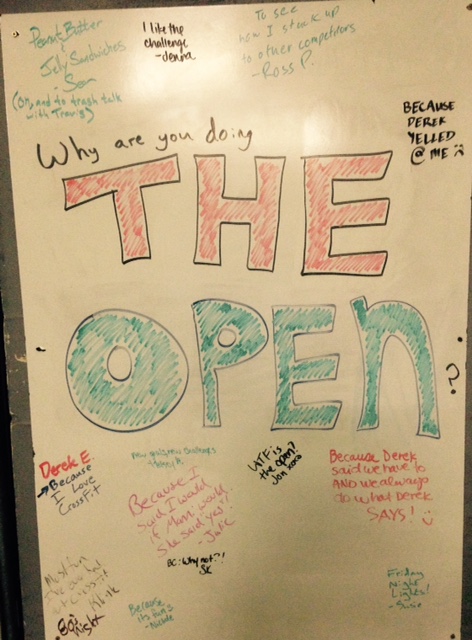 Peanut Butter
&
Jelly Sandwiches
- Sean
(oh, and to trash talk
with Travis)
I like the
challenge
- Jenna
To see
how I stack up
to other competitors
- Ross P.
BECAUSE
DEREK
YELLED
@ ME
Why are you doing
THE
OPEN
?
Derek E.
Because
I Love
CrossFit
Because I
said I would
if Mom would
She said yes!
- Julie
WTF is
the open?
Jon xoxo
Because Derek
said we have to
AND we always
do what Derek
SAYS!
BC: Why not?!
SK
Because
its fun
- Nichole
Friday
Night
Lights!
- Susie
80's
Night